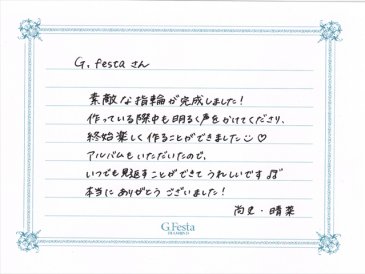 G.festaさん
素敵な指輪が完成しました!
作っている際中も明るく声をかけてくださり、
終始楽しく作ることができました☺♡
アルバムもいただいたので、
いつでも見返すことができてうれしいです♫
本当にありがとうございました!
尚見・晴菜
G.Festa